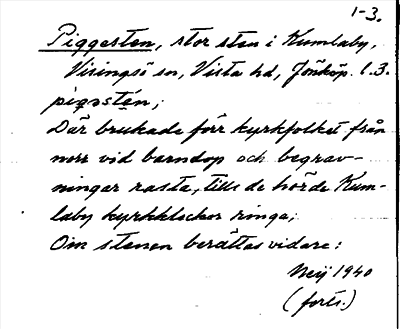 1-3.
Piggesten, stor sten i Kumlaby,
Visingsö sn, Vista hd, Jönköp. l. 3.
pigəstén,
Där brukade förr kyrkfolket från
norr vid barndop och begrav-
ningar rasta, tills de hörde Kum-
laby kyrkklockor ringa;
Om stenen berättas vidare:
1940
(forts.)